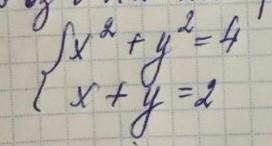 x² + y² = 4
x + y = 2